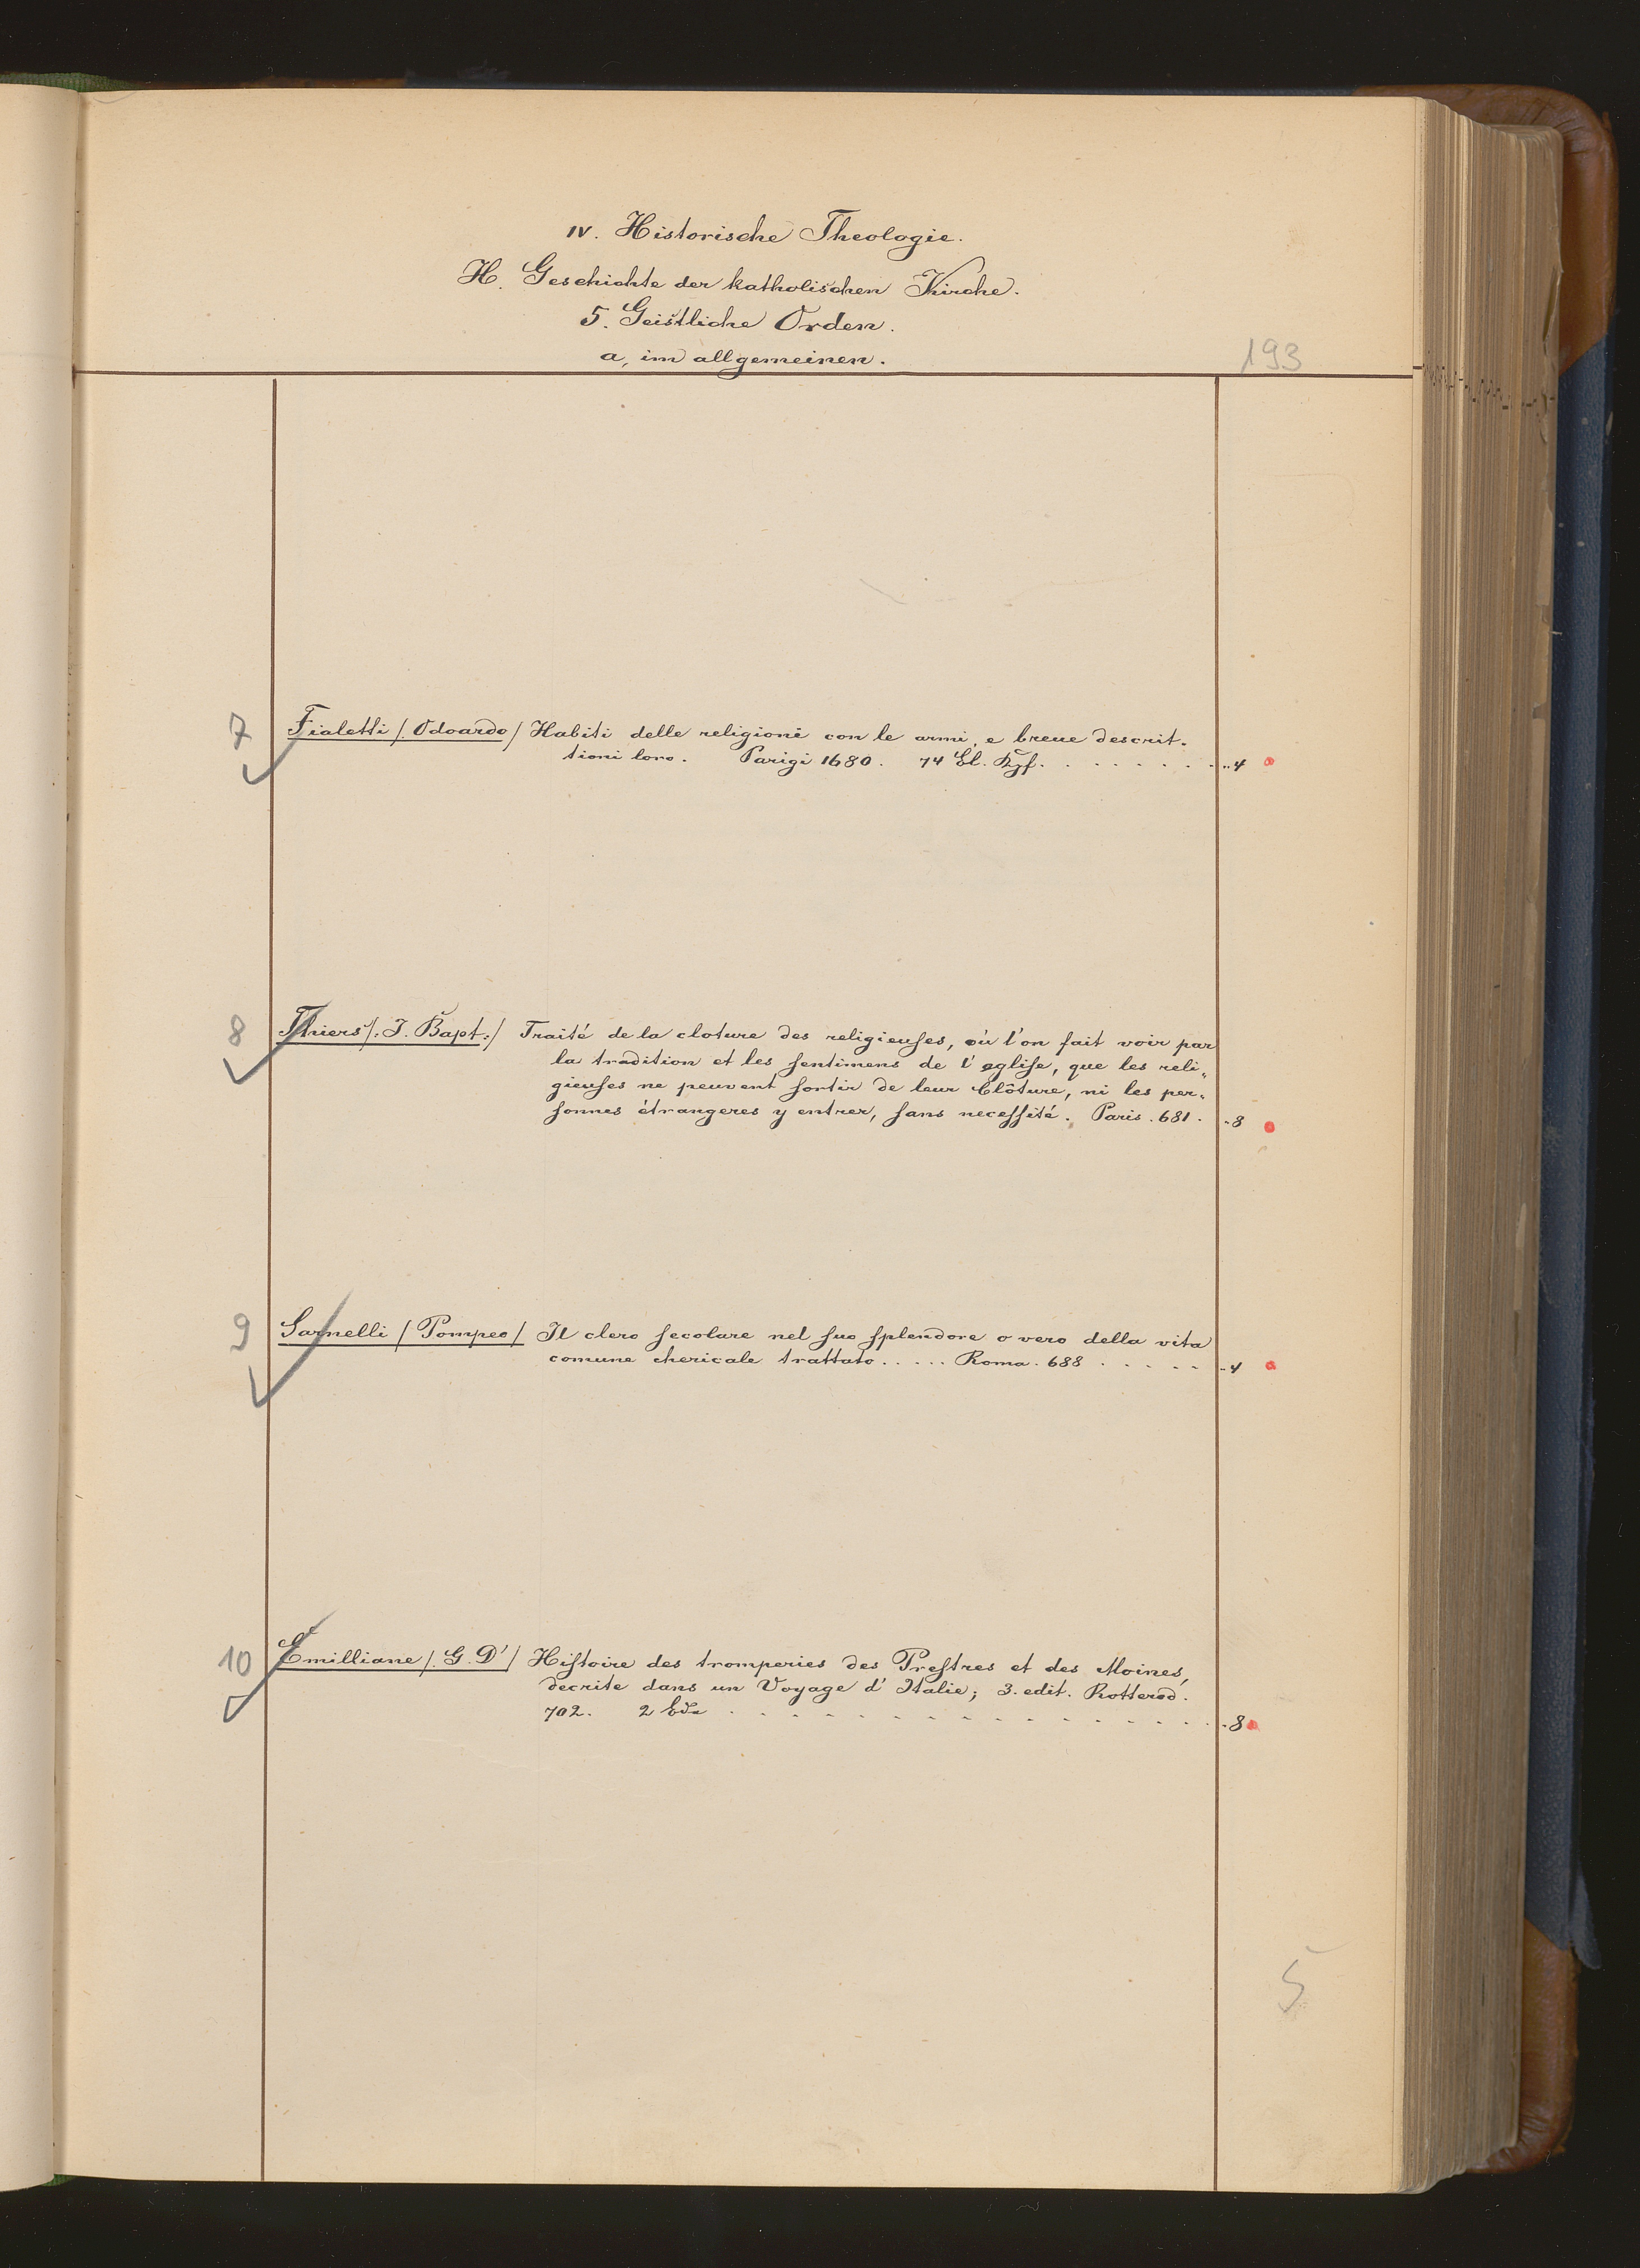 IV. Historische Theologie.
H. Geschichte der katholischen Kirche.
5. Geistliche Orden.
a, im allgemeinen.
193
7 Fialetti /. Odoardo / Habiti delle religioni con le armi, e breue descrit-
tioni loro. Parigi 1680. 74 Bl. Kpf. . . . . . . . . „ 4
8 Thiers /. J. Bapt. :/ Traité de la cloture des religieuses, où l'on fait voir par
la tradition et les sentimens de l'eglise, que les reli„
gieuses ne peuvent sortir de leur Clôture, ni les per„
sonnes étrangeres y entrer, sans necessité. Paris. 681. „ 8
9 Sarnelli / Pompeo / Il clero secolare nel suo splendore o vero della vita
comune chericale trattato. . . . . Roma. 688 . . . . . „ 4
10 Emilliane /. G. D' / Histoire des tromperies des Prestres et des Moines,
decrite dans un Voyage d'Italie; 3. edit. Rotterod.
702. 2 Bde . . . . . . . . . . . . . . . . „ 8
5